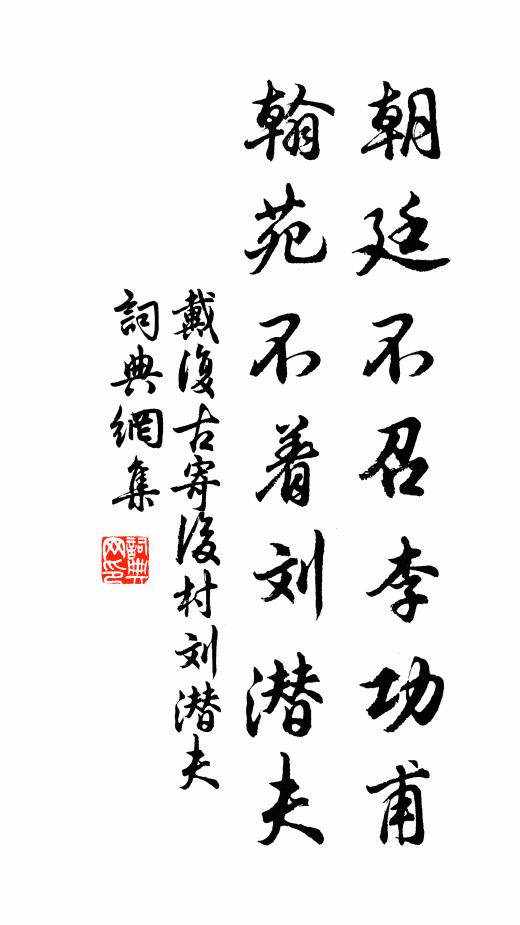 朝廷不召李功甫
翰苑不着刘潜夫
戴復古寄後村刘潜夫
詞典網集
詞典網印